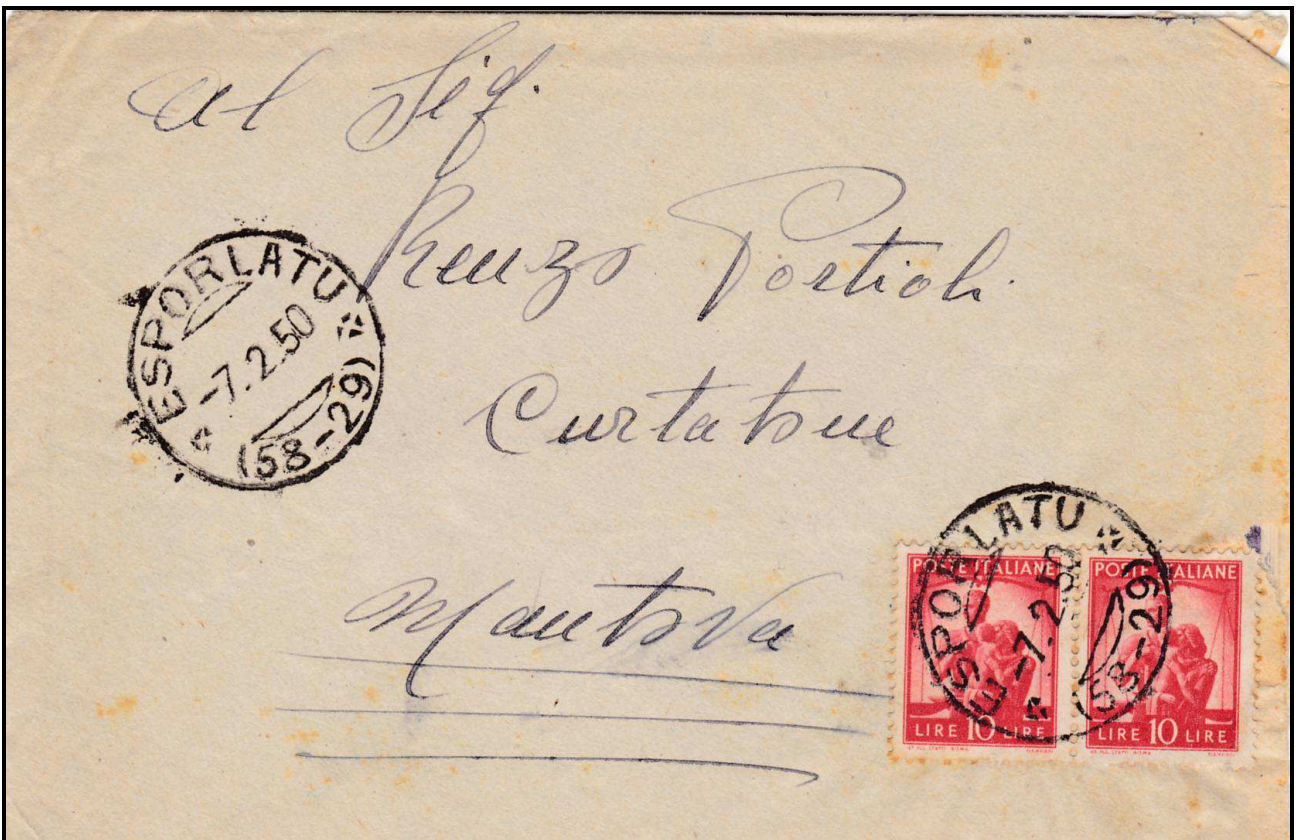 Al Sig.
Renzo Portioli
Curtatone
Mantova
ESPORLATU
-7.2.50
(58-29)
ESPORLATU
-7.2.50
(58-29)
POSTE ITALIANE
LIRE 10 LIRE
POSTE ITALIANE
LIRE 10 LIRE